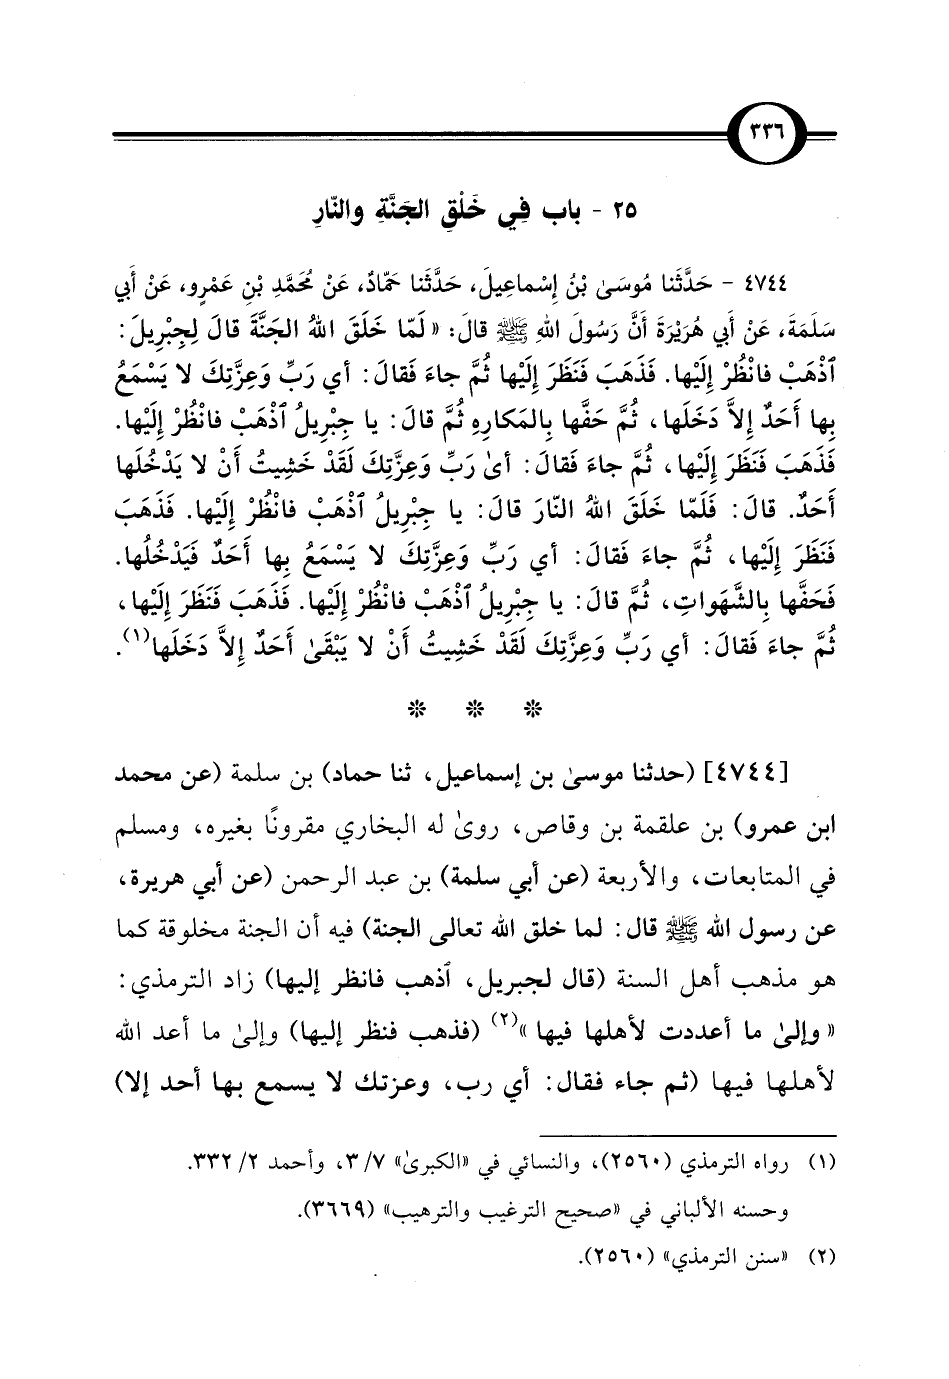 ٣٣٦
٢٥ - باب فِي خَلْقِ الجَنَّةِ والنّارِ
٤٧٤٤ - حَدَّثَنا مُوسَىٰ بْنُ إِسْماعِيلَ، حَدَّثَنا حَمّادٌ، عَنْ مُحَمَّدِ بْنِ عَمْرٍو، عَنْ أَبي
سَلَمَةَ، عَنْ أَبي هُرَيْرَةَ أَنَّ رَسُولَ اللهِ ﷺ قالَ: «لَمّا خَلَقَ اللهُ الجَنَّةَ قالَ لِجِبْرِيلَ:
ٱذْهَبْ فانْظُرْ إِلَيْها. فَذَهَبَ فَنَظَرَ إِلَيْها ثُمَّ جاءَ فَقالَ: أي رَبِّ وَعِزَّتِكَ لا يَسْمَعُ
بِها أَحَدٌ إِلاَّ دَخَلَها، ثُمَّ حَفَّها بِالمَكارِهِ ثُمَّ قالَ: يا جِبْرِيلُ ٱذْهَبْ فانْظُرْ إِلَيْها.
فَذَهَبَ فَنَظَرَ إِلَيْها، ثُمَّ جاءَ فَقالَ: أىْ رَبِّ وَعِزَّتِكَ لَقَدْ خَشِيتُ أَنْ لا يَدْخُلَها
أَحَدٌ. قالَ: فَلَمّا خَلَقَ اللهُ النّارَ قالَ: يا جِبْرِيلُ ٱذْهَبْ فانْظُرْ إِلَيْها. فَذَهَبَ
فَنَظَرَ إِلَيْها، ثُمَّ جاءَ فَقالَ: أي رَبِّ وَعِزَّتِكَ لا يَسْمَعُ بِها أَحَدٌ فَيَدْخُلُها.
فَحَفَّها بِالشَّهَواتِ، ثُمَّ قالَ: يا جِبْرِيلُ ٱذْهَبْ فانْظُرْ إِلَيْها. فَذَهَبَ فَنَظَرَ إِلَيْها،
ثُمَّ جاءَ فَقالَ: أي رَبِّ وَعِزَّتِكَ لَقَدْ خَشِيتُ أَنْ لا يَبْقَىٰ أَحَدٌ إِلاَّ دَخَلَها(١).
* * *
[٤٧٤٤] (حدثنا موسىٰ بن إسماعيل، ثنا حماد) بن سلمة (عن محمد
ابن عمرو) بن علقمة بن وقاص، روىٰ له البخاري مقرونًا بغيره، ومسلم
في المتابعات، والأربعة (عن أبي سلمة) بن عبد الرحمن (عن أبي هريرة،
عن رسول الله ﷺ قال: لما خلق الله تعالى الجنة) فيه أن الجنة مخلوقة كما
هو مذهب أهل السنة (قال لجبريل، ٱذهب فانظر إليها) زاد الترمذي:
«وإلىٰ ما أعددت لأهلها فيها»(٢) (فذهب فنظر إليها) وإلىٰ ما أعد الله
لأهلها فيها (ثم جاء فقال: أي رب، وعزتك لا يسمع بها أحد إلا)
(١) رواه الترمذي (٢٥٦٠)، والنسائي في «الكبرىٰ» ٧/ ٣، وأحمد ٢/ ٣٣٢.
وحسنه الألباني في «صحيح الترغيب والترهيب» (٣٦٦٩).
(٢) «سنن الترمذي» (٢٥٦٠).